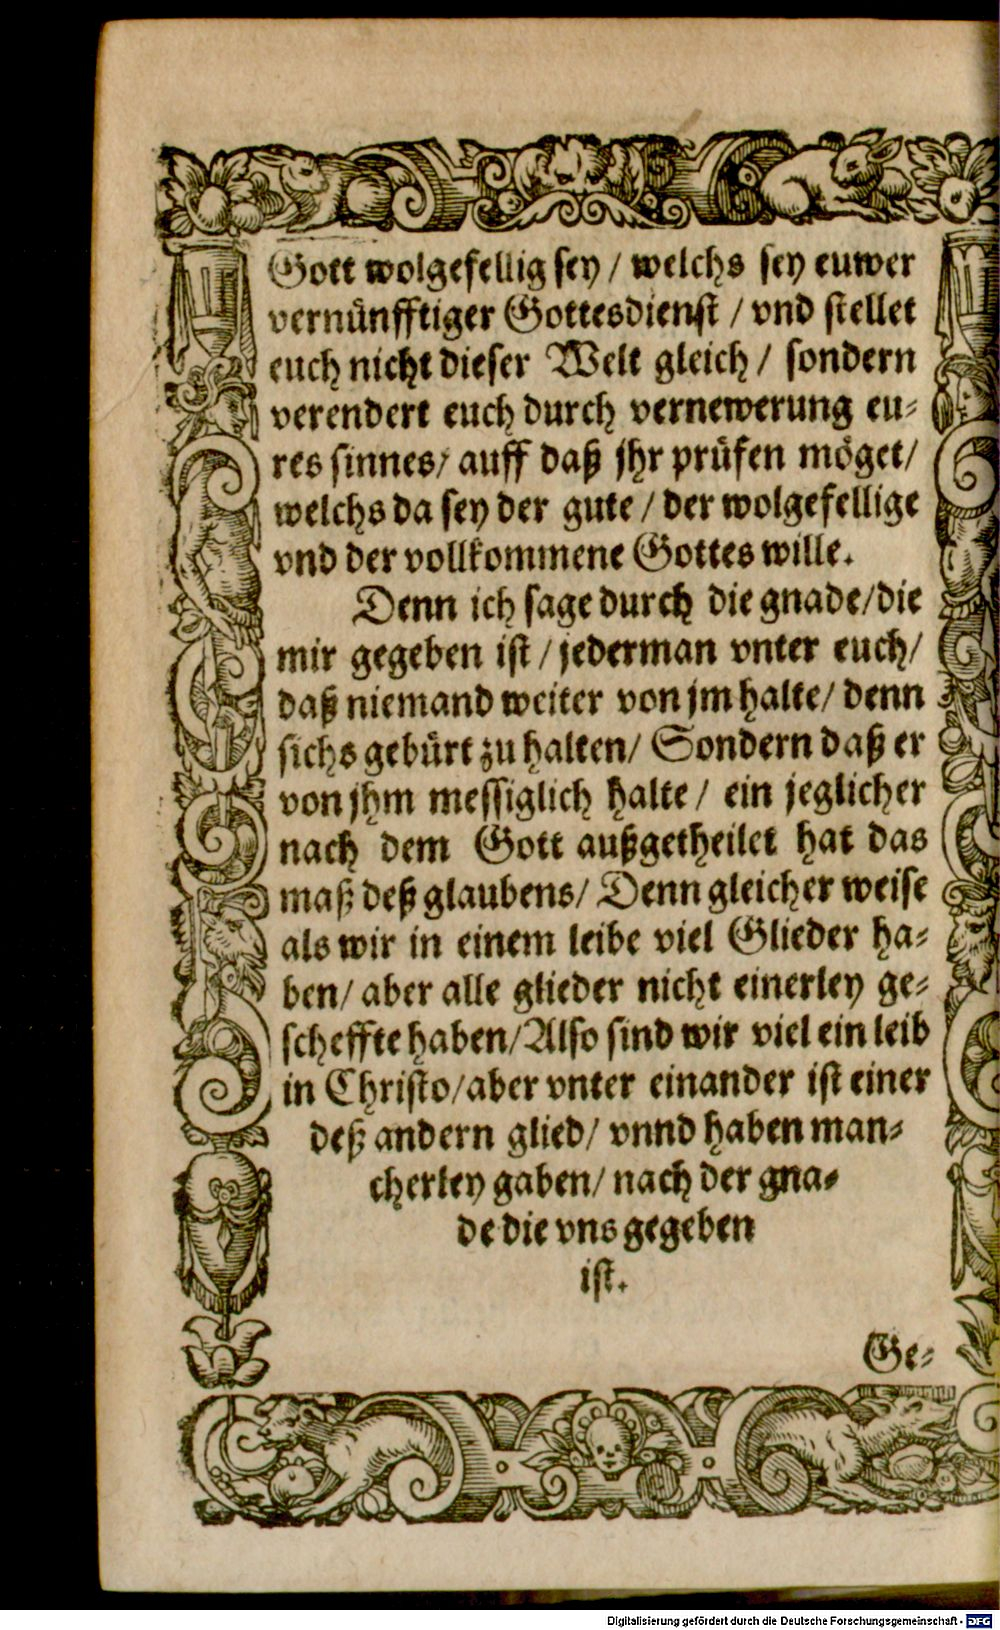 Gott wolgefellig sey / welchs sey euwer
vernünfftiger Gottesdienst / vnd stellet
euch nicht dieser Welt gleich / sondern
verendert euch durch vernewerung eu-
res sinnes / auff daß jhr prüfen möget /
welchs da sey der gute / der wolgefellige
vnd der vollkommene Gottes wille.
Denn ich sage durch die gnade / die
mir gegeben ist / jederman vnter euch /
daß niemand weiter von jm halte / denn
sichs gebürt zu halten / Sondern daß er
von jhm messiglich halte / ein jeglicher
nach dem Gott außgetheilet hat das
maß deß glaubens / Denn gleicher weise
als wir in einem leibe viel Glieder ha-
ben / aber alle glieder nicht einerley ge-
scheffte haben / Also sind wir viel ein leib
in Christo / aber vnter einander ist einer
deß andern glied / vnnd haben man-
cherley gaben / nach der gna-
de die vns gegeben
ist.
Ge-
Digitalisierung gefördert durch die Deutsche Forschungsgemeinschaft - DFG